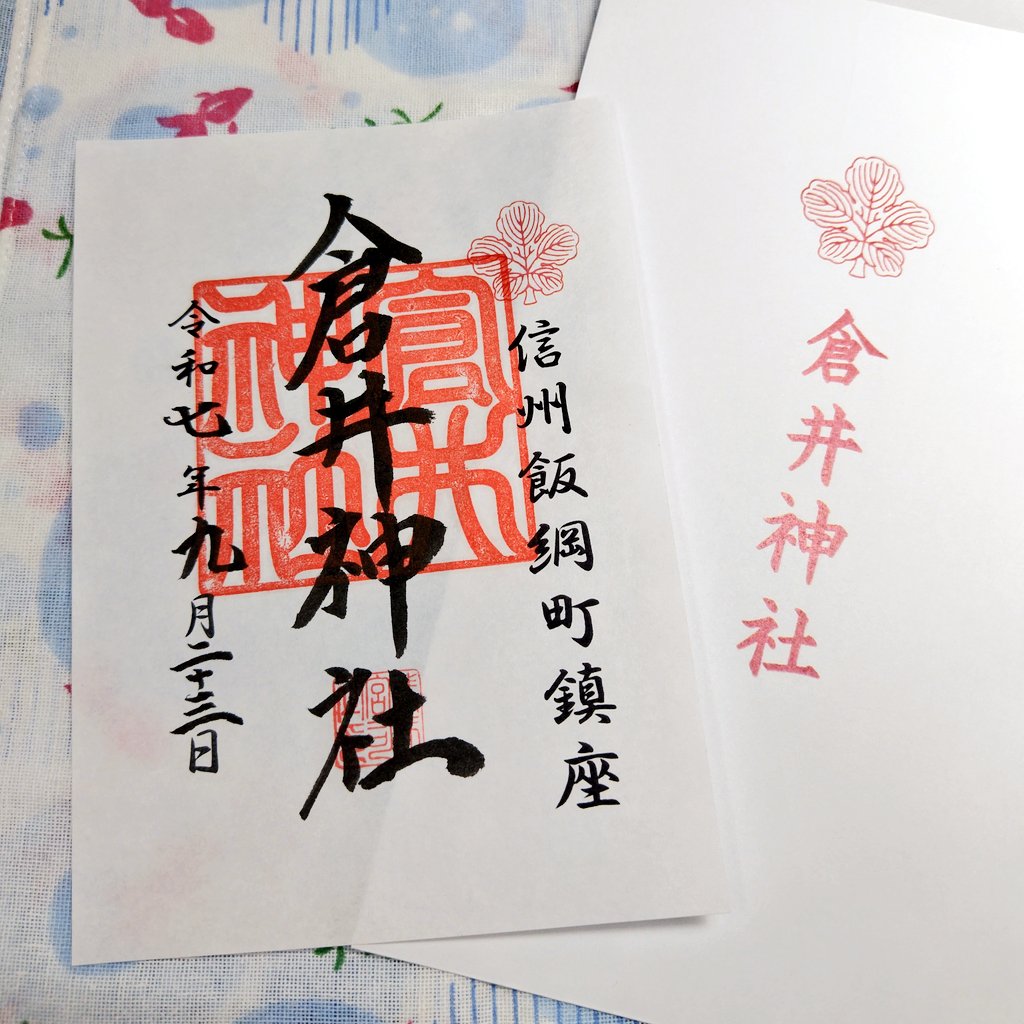 信州飯綱町鎮座
倉井神社
令和七年九月二十三日
倉井神社
倉井神社